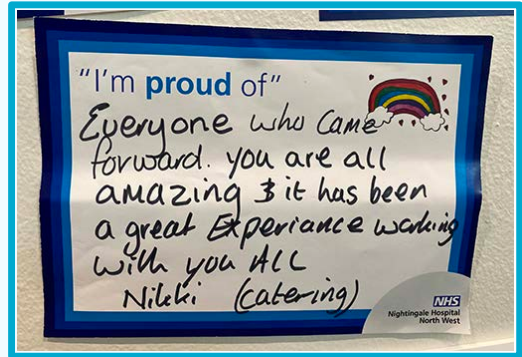 "I'm proud of"
Everyone who came
forward. you are all
amazing & it has been
a great Experiance working
with you ALL
Nikki (catering)
NHS
Nightingale Hospital
North West